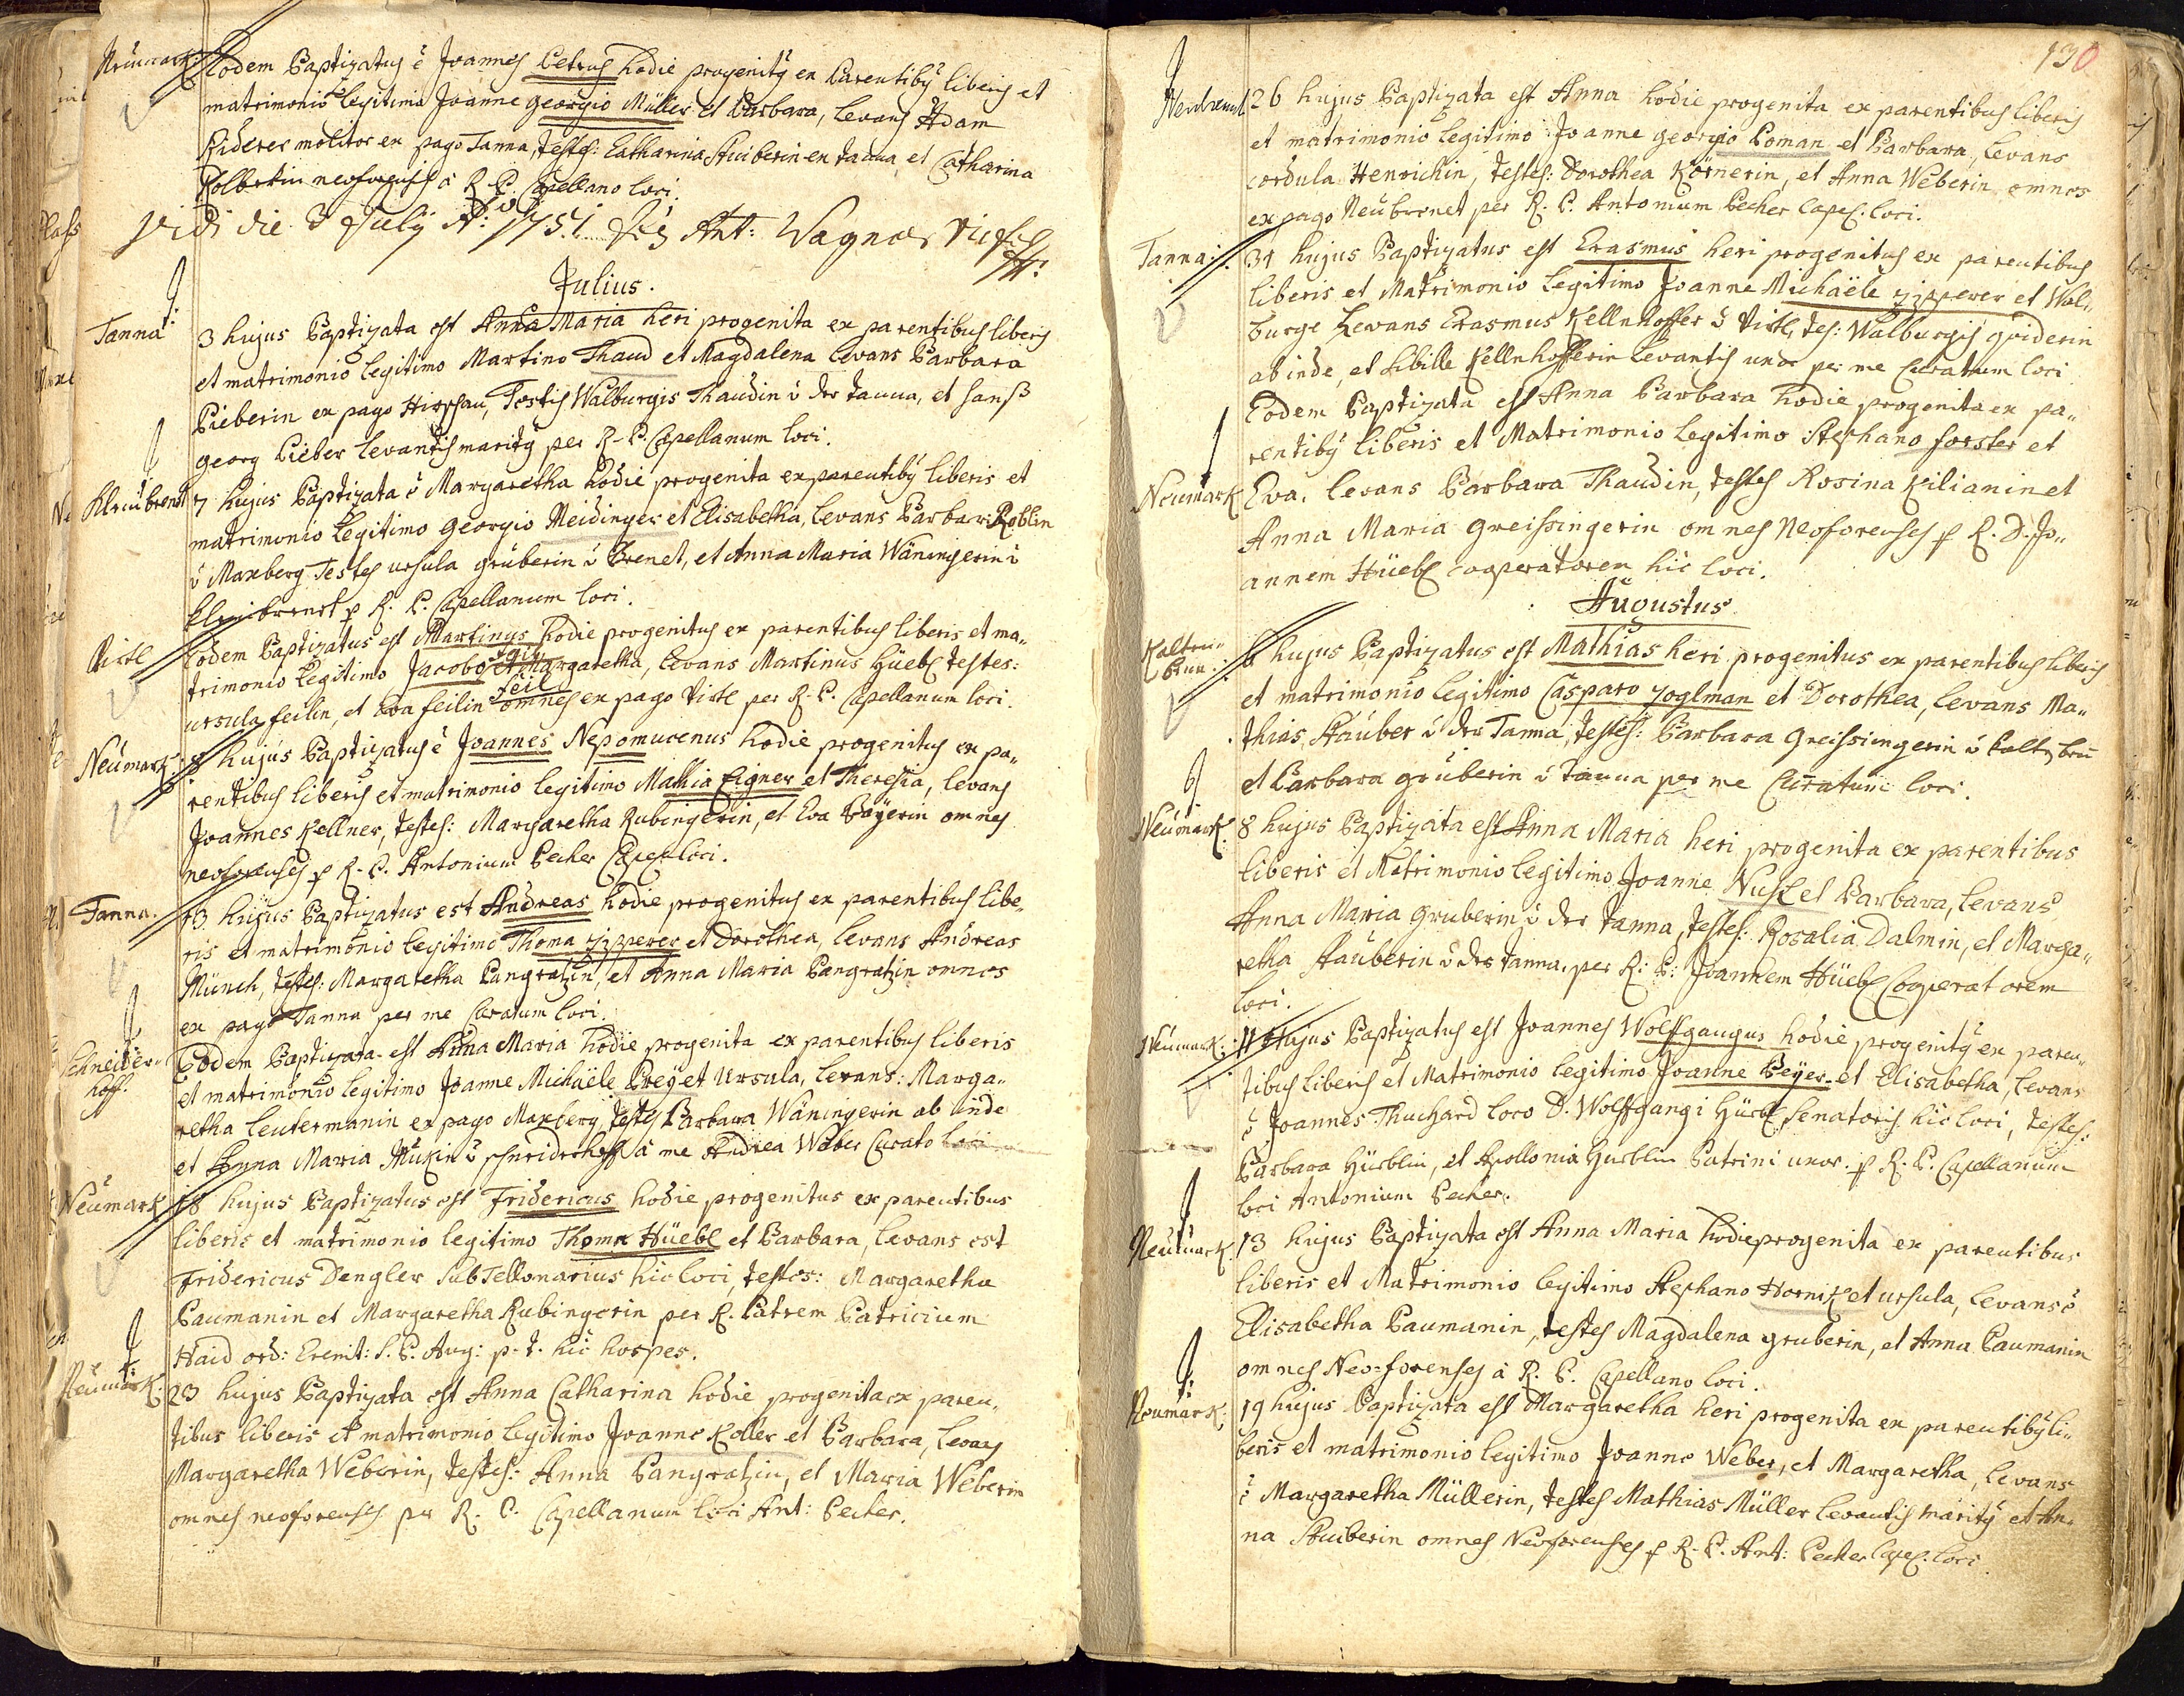 Neümark: Eodem Baptizatus ē Joannes Petrus hodie progenitȝ ex Parentibȝ liberis et
matrimonio Legitimo Joanne georgio Müller et Barbara, Levans Adam
Ruderer molitor ex pago Tanna, testes: Catharina Stuiberin ex Tanna, et Catharina
neoforensis à R. P. Capellano loci.
Vidi die 3 July Aō: 1751. Ant: Wagner
Julius.
Tanna: 3 hujus Baptizata est Anna Maria heri progenita ex parentibus liberis
et matrimonio legitimo Martino Thaud et Magdalena Levans Barbara
Pieberin ex pago Hirschau, Testis Walburgis Thaudin ù der tanna, et Hanß
georg Pieber Levantis maritȝ per R. P. Capellanum loci.
Kleinbrenet 7 hujus Baptizata ē Margaretha hodie progenita ex parentibȝ liberis et
matrimonio Legitimo Georgio Meidinger et Elisabetha, Levans Barbar Roblin
ù Maxberg Testes ursula gruberin ù Brenet, et Anna Maria Wäningerin ù
kleinbrenet p R. P. Capellanum loci.
Virtl Eodem Baptizatus est Martinus hodie progenitus ex parentibus liberis et ma„
trimonio Legitimo Jacobo feil et Margaretha, Levans Martinus Hüebl testes:
ursula feilin, et Eva feilin omnes ex pago Virtl per R. P. Capellanum loci.
Neümark 8 hujus Baptizatus ē Joannes Nepomucenus hodie progenitus ex pa„
rentibus liberis et matrimonio legitimo Mathia Eigner et Theresia, levans
Joannes Kellner, testes: Margaretha Rubingerin, et Eva Bayerin omnes
neoforenses p R. P. Antonium Pecher Capel: loci.
Tanna. 13 hujus Baptizatus est Andreas hodie progenitus ex parentibus libe„
ris et matrimonio legitimo Thoma Zizperer et Dorothea, levans Andreas
Münch, testes: Margaretha Pangratzin, et Anna Maria Pangratzin omnes
ex pago Tanna per me Curatum loci.
Schneider„ Eodem Baptizata est Anna Maria hodie progenita ex parentibus liberis
hoff. et matrimonio legitimo Joanne Michaële Preÿ et Ursula, levans: Marga„
retha Leutermanin ex pago Maxberg, testes Barbara Wäningerin ab inde
et Anna Maria ù schneiderhoff à me Andrea Weber Curato loci
Neümark 18 hujus Baptizatus est Fridericus hodie progenitus ex parentibus
liberis et matrimonio legitimo Thoma Hüebl et Barbara, levans est
Fridericus Dengler SubTellonarius hic loci, testes: Margaretha
Paumanin et Margaretha Rubingerin per R. Patrem Patricium
Haid ord: Eremit: S. P. Aug: p. t. hic hospes.
Neümark: 23 hujus Baptizata est Anna Catharina hodie progenita ex paren„
tibus liberis et matrimonio legitimo Joanne Koller et Barbara, levans
Margaretha Weberin, testes: Anna Pangratzin, et Maria Weberin
omnes neoforenses per R. P. Capellanum loci Ant: Pecher.
130
26 hujus Baptizata est Anna hodie progenita ex parentibus liberis
et matrimonio legitimo Joanne georgio Loman et Barbara, levans
cordula Henrichin, testes: Dorothea Körnerin, et Anna Weberin omnes
ex pago Neübrenet per R. P. Antonium Pecher Capel: loci.
Tanna: 31 hujus Baptizatus est Erasmus heri progenitus ex parentibus
liberis et Matrimonio legitimo Joanne Michaële Zizperer et Wal„
burge Levans Erasmus Kellnhoffer ù Virtl, tes: Walburgis gviderin
ab inde, et Sibille Kellnhofferin Levantis uxor per me Curatum loci
Eodem Baptizata est Anna Barbara hodie progenita ex pa„
rentibȝ liberis et Matrimonio legitimo Stephano forster et
Neumark Eva. levans Barbara Thaudin, testes Rosina Kilianin et
Anna Maria greissingerin omnes Neoforenses p R. D. Jo„
annem Hüebl Cooperatorem hic loci.
Augustus
Kalten„ 6 hujus Baptizatus est Mathias heri progenitus ex parentibus liberis
brun: et matrimonio legitimo Casparo Zoglman et Dorothea, levans Ma„
thias Stauber ù der Tanna, testes: Barbara greissingerin ù kaltenbrū
et Barbara gruberin ù Tanna per me Curatum loci.
Neümark: 8 hujus Baptizata est Anna Maria heri progenita ex parentibus
liberis et Matrimonio legitimo Joanne Nusl et Barbara, levans
Anna Maria gruberin ù der tanna, testes: Rosalia Dalmin, et Marga„
retha Stauberin ù der tanna. per R: P: Joannem Hüebl Cooperatorem
loci.
Neümark: 11 Hujus Baptizatus est Joannes Wolffgangus hodie progenitȝ ex paren„
tibus liberis et Matrimonio legitimo Joanne Peÿer et Elisabetha, levans
ē Joannes Thuchard loco D. Wolffgangi Hürbl Senatoris hic loci, testes:
Barbara Hürblin, et Apollonia Hürblin Patrini uxor. p R. P. Capellanum
loci Antonium Pecher.
Neümark: 13 hujus Baptizata est Anna Maria hodie progenita ex parentibus
liberis et Matrimonio legitimo Stephano Hornik et ursula, levans ē
Elisabetha Paumanin, testes Magdalena gruberin, et Anna Paumanin
omnes Neo=forenses à R. P. Capellano loci.
Neümark: 19 hujus Baptizata est Margaretha heri progenita ex parentibȝ li„
beris et matrimonio legitimo Joanne Weber, et Margaretha, levans
ē Margaretha Müllerin, testes Mathias Müller levantis maritȝ et An„
na Stuiberin omnes Neoforenses p R. P. Ant: Pecher Capel: loci